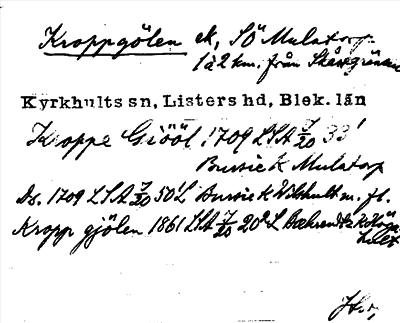 Kroppgölen ek, SÖ Mulatorp
1 à 2 km. från Skånegränsen
Kyrkhults sn, Listers hd, Blek. län
Kroppe Giööl 1709 LSA 7/20 33'
Bursie k Mulatorp
Ds. 1709 LSA 7/20 50'L Bursie k m. fl.
Kropp gjölen 1861 LSA 7/20 20 L